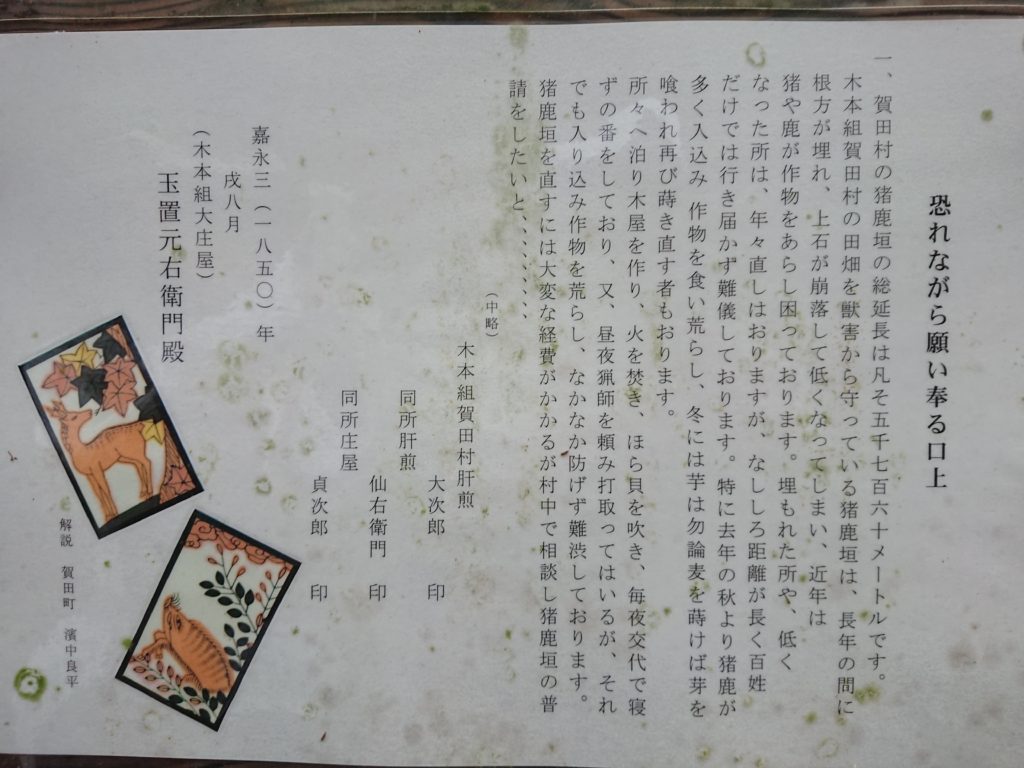 恐れながら願い奉る口上
一、賀田村の猪鹿垣の総延長は凡そ五千七百六十メートルです。
木本組賀田村の田畑を獣害から守っている猪鹿垣は、長年の間に
根方が埋れ、上石が崩落して低くなってしまい、近年は
猪や鹿が作物をあらし困っております。埋もれた所や、低く
なった所は、年々直しはおりますが、なししろ距離が長く百姓
だけでは行き届かず難儀しております。特に去年の秋より猪鹿が
多く入込み 作物を食い荒らし、冬には芋は勿論麦を蒔けば芽を
喰われ再び蒔き直す者もおります。
所々へ泊り木屋を作り、火を焚き、ほら貝を吹き、毎夜交代で寝
ずの番をしており、又、昼夜猟師を頼み打取ってはいるが、それ
でも入り込み作物を荒らし、なかなか防げず難渋しております。
猪鹿垣を直すには大変な経費がかかるが村中で相談し猪鹿垣の普
請をしたいと、、、、、、、、
(中略)
木本組賀田村肝煎
大次郎 印
同所肝煎
仙右衛門 印
同所庄屋
貞次郎 印
嘉永三(一八五〇)年
戌八月
(木本組大庄屋)
玉置元右衛門殿
解説 賀田町 濱中良平